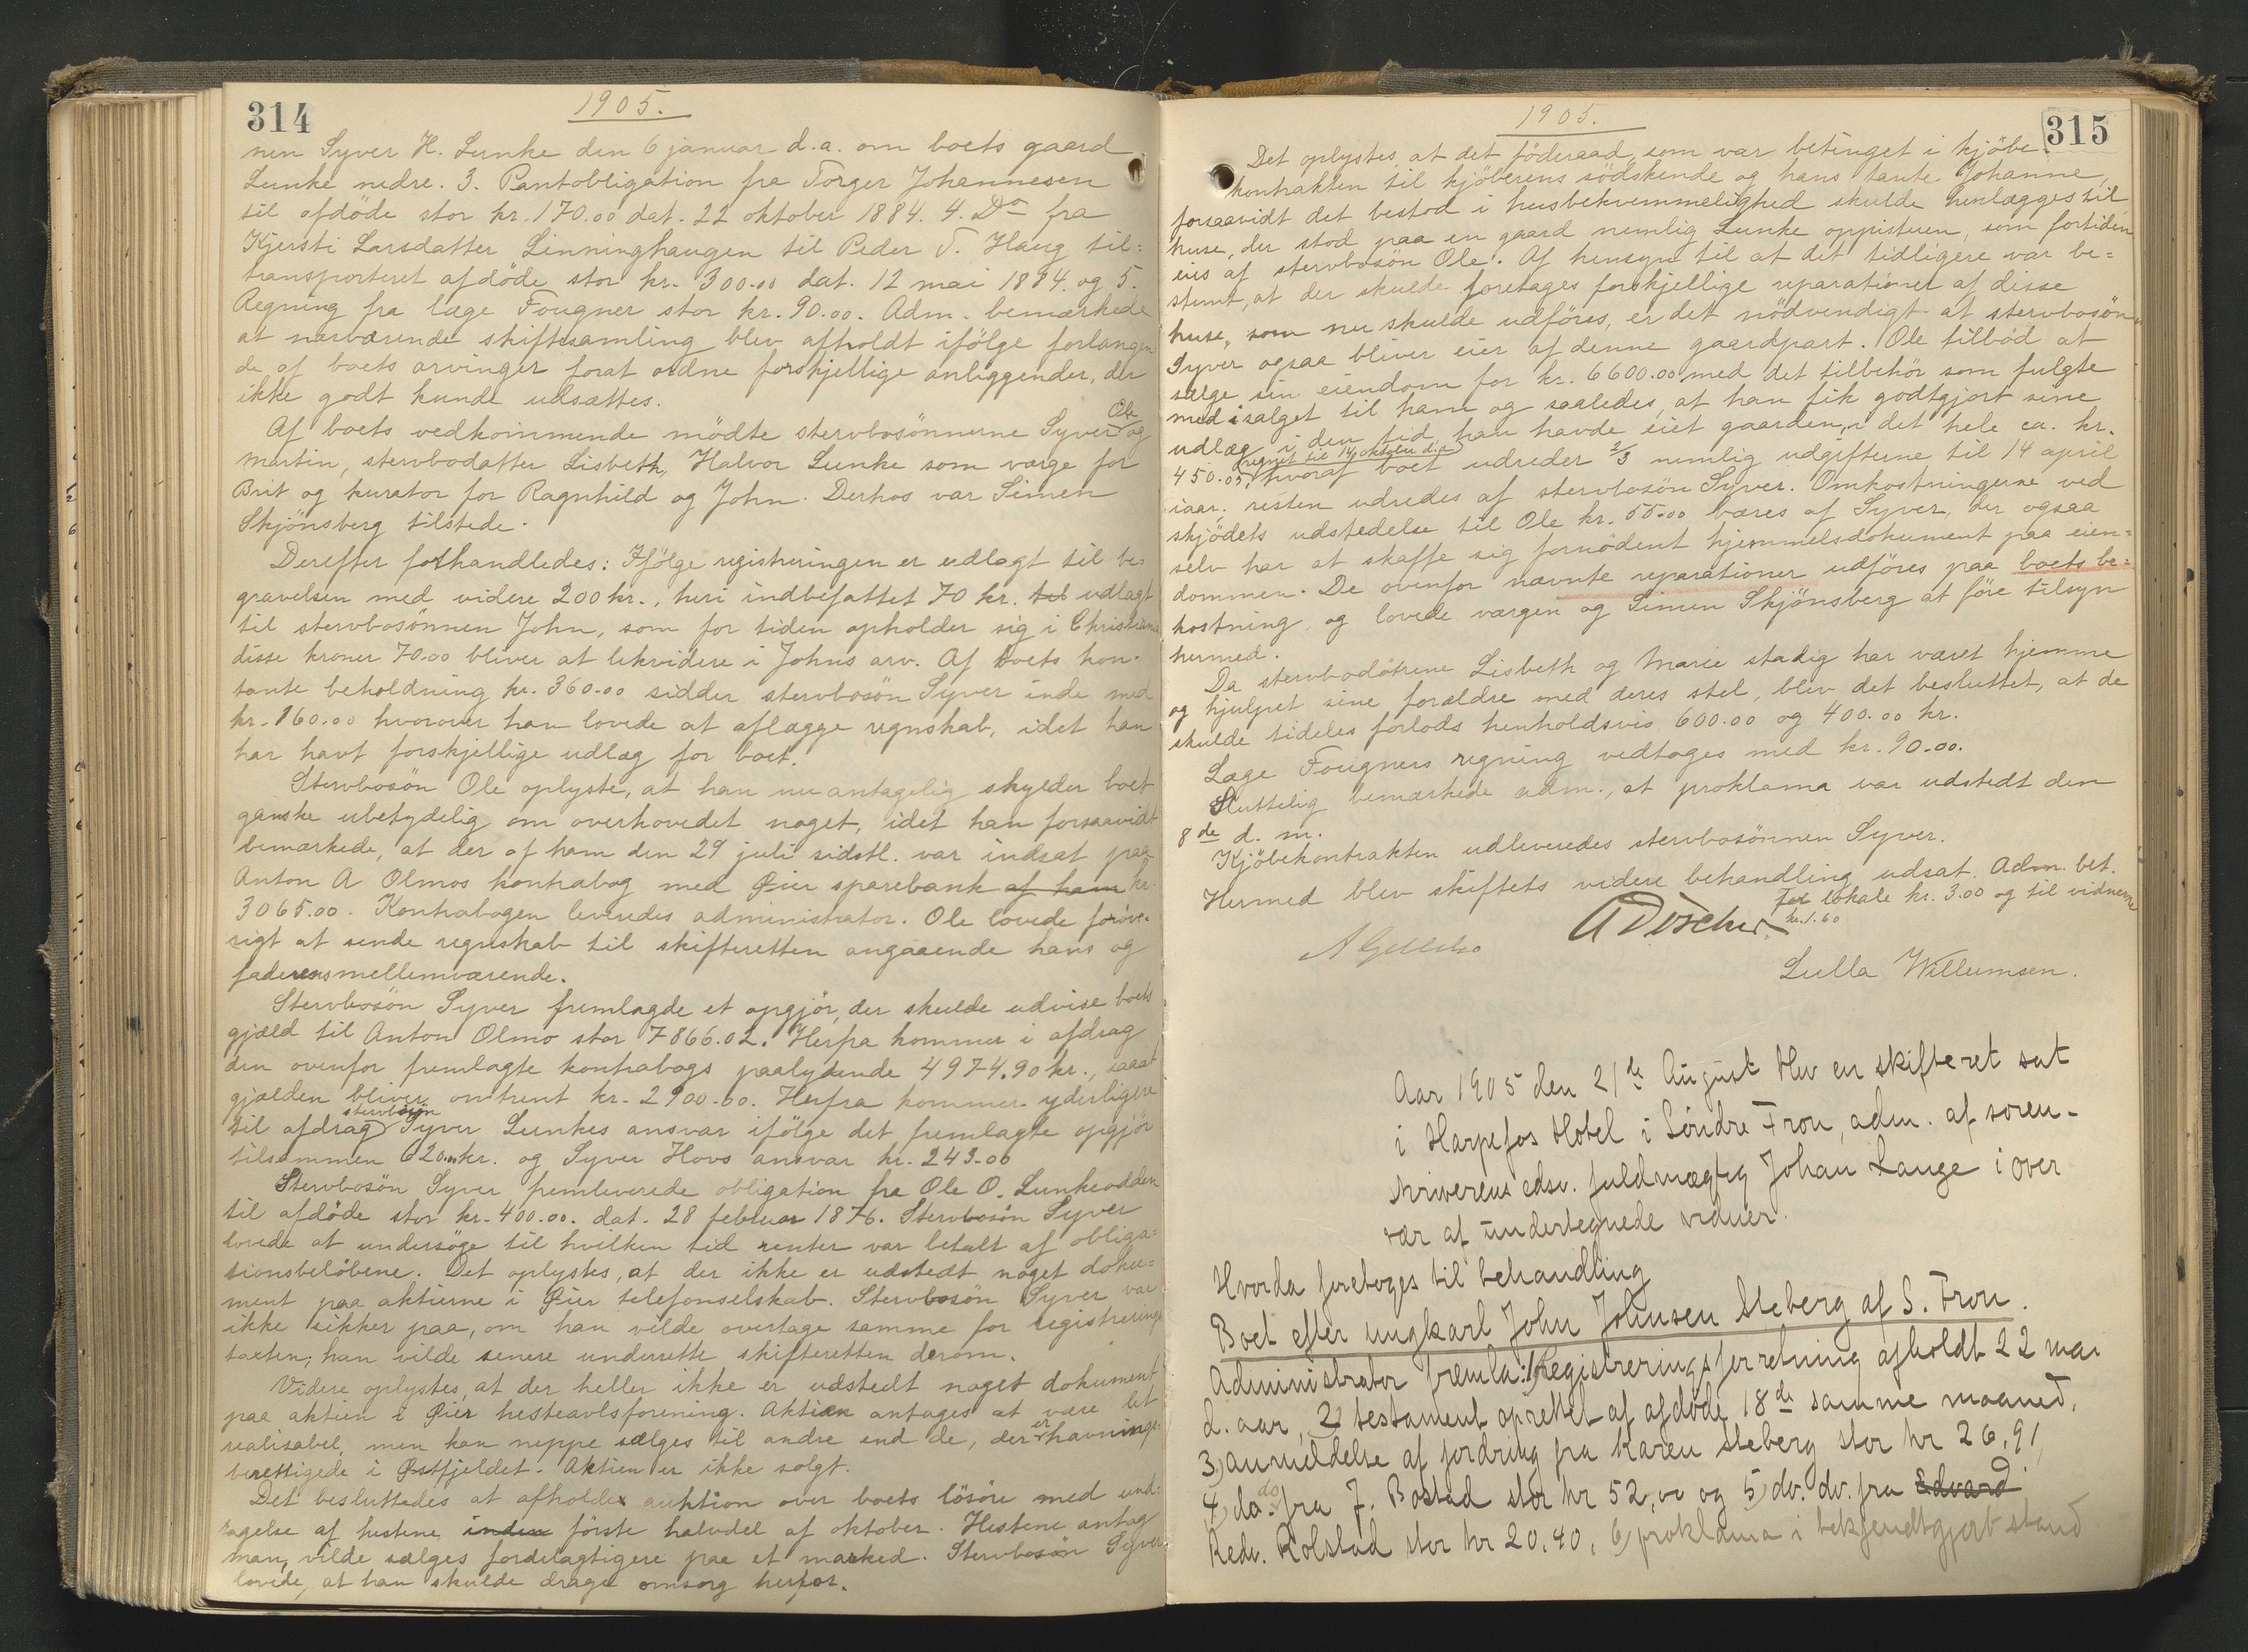 314
1905.
nen Syver H. Lunke den 6 januar d.a. om boets gaard
Lunke nedre. 3. Pantobligation fra Torger Johannesen
til afdöde stor kr. 170.00 dat. 22 oktober 1884. 4. Do fra
Kjersti Larsdatter Linninghaugen til Peder T. Haug til=
transporteret afdöde stor kr. 300.00 dat. 12 mai 1884. og 5.
Regning fra læge Fougner stor kr. 90.00. Adm. bemærkede
at nærværende skiftesamling blev afholdt ifölge forlangen
de af boets arvinger forat ordne forskjellige anliggender, der
ikke godt kunde udsættes.
Af boets vedkommende mödte stervbosönnerne Syver Ole og
Martin, stervbodatter Lisbeth, Halvor Lunke som værge for
Brit og kurator for Ragnhild og John. Derhos var Simen
Skjönsberg tilstede.
Derefter forhandledes: Ifölge registreringen er udlagt til be=
gravelsen med videre 200 kr., heri indbefattet 70 kr. til udlagt
til stervbosönnen John, som for tiden opholder sig i Christiania
disse kroner 70.00 bliver at likvidere i Johns arv. Af boets kon-
tante beholdning kr. 360.00 sidder stervbosön Syver inde med
kr. 160.00 hvorover han lovede at aflægge regnskab, idet han
har havt forskjellige udlæg for boet.
Stervbosön Ole oplyste, at han nu antagelig skylder boet
ganske ubetydelig om overhovedet noget, idet han forsaavidt
bemærkede, at der af ham den 29 juli sidstl. var indsat paa
Anton A Olmos kontrabog med Øier sparebank af ham kr.
3065.00. Kontrabogen leveredes administrator. Ole lovede foröv-
rigt at sende regnskab til skifteretten angaaende hans og
faderens mellemværende.
Stervbosön Syver fremlagde et opgjör, der skulde udvise boets
gjæld til Anton Olmo stor 7866.02. Herfra kommer i afdrag
den ovenfor fremlagte kontrabogs paalydende 4974.90 kr., saaat
gjælden bliver omtrent kr. 2900.00. Herfra kommer yderligere
til afdrag stervbosön Syver Lunkes ansvar ifölge det fremlagte opgjör
tilsammen 620.00 kr. og Syver Hovs ansvar kr. 243.00
Stervbosön Syver fremleverede obligation fra Ole O. Lunkeodden
til afdöde stor kr. 400.00. dat. 28 februar 1876. Stervbosön Syver
lovede at undersöge til hvilken tid renter var betalt af obliga=
tionsbelöbene. Det oplystes, at der ikke er udstedt noget doku=
ment paa aktierne i Øier telefonselskab. Stervbosön Syver var
ikke sikker paa, om han vilde overtage samme for registrerings
taxten; han vilde senere underrette skifteretten derom.
Videre oplystes, at der heller ikke er udstedt noget dokument
paa aktien i Øier hesteavlsforening. Aktien antages at være let
realisabel, men kan neppe sælges til andre end de, der er havnings-
berettigede i Østfjeldet. Aktien er ikke solgt.
Det besluttedes at afholde auktion over boets lösöre med und=
tagelse af hestene inden förste halvdel af oktober. Hestene antog
man, vilde sælges fordelagtigere paa et marked. Stervbosön Syver
lovede, at han skulde drage omsorg herfor.
1905.
315
Det oplystes, at det föderaad, som var betinget i kjöbe-
kontrakten til kjöberens södskende og hans tante Johanne,
forsaavidt det bestod i husbekvemmelighed skulde henlægges til
huse, der stod paa en gaard nemlig Lunke oppistuen, som fortiden
eies af stervbosön Ole. Af hensyn til at det tidligere var be=
stemt, at der skulde foretages forskjellige reparationer af disse
huse, som nu skulde udföres, er det nödvendigt at stervbosönnen
Syver ogsaa bliver eier af denne gaardpart. Ole tilböd at
sælge sin eiendom for kr. 6600.00 med det tilbehör som fulgte
med i salget til ham og saaledes, at han fik godtgjort sine
udlæg i den tid han havde eiet gaarden, i det hele ca. kr.
450.05, regnet til 14 oktober d.a. hvoraf boet udreder 2/3 nemlig udgifterne til 14 april
iaar; resten udredes af stervbosön Syver. Omkostningerne ved
skjödets udstedelse til Ole kr. 55.00 bæres af Syver, der ogsaa
selv har at skaffe sig fornödent hjemmelsdokument paa eien=
dommen. De ovenfor nævnte reparationer udföres paa boets be=
kostning, og lovede værgen og Simen Skjönsberg at före tilsyn
hermed.
Da stervbodötrene Lisbeth og Marie stadig har været hjemme
og hjulpet sine forældre med deres stel, blev det besluttet, at de
skulde tildeles forlods henholdsvis 600.00 og 400.00 kr.
Læge Fougners regning vedtoges med kr. 90.00.
Sluttelig bemærkede adm., at proklama var udstedt den
8de d. m.
Kjöbekontrakten udleveredes stervbosönnen Syver.
Hermed blev skiftets videre behandling udsat. Adm. bet.
for lokale kr. 3.00 og til vidnerne
kr. 1.60
Lulla Willumsen.
Aar 1905 den 21de August blev en skifteret sat
i Harpefos Hotel i Söndre Fron, adm. af soren-
skriverens edsv. fuldmægtig Johan Lange i over
vær af undertegnede vidner.
Hvorda foretoges til behandling
Boet efter ungkarl John Johnsen Steberg af S. Fron.
Administrator fremla: 1) Registreringsforretning afholdt 22 mai
d. aar, 2) testament oprettet af afdöde 18de samme maaned,
3) anmeldelse af fordring fra Karen Steberg stor kr 26,91
4) do. do fra J. Bostad stor kr 52,00 og 5) do. do. fra Edvard
Redv. Kolstad stor kr 20.40, 6) proklama i bekjendtgjort stand